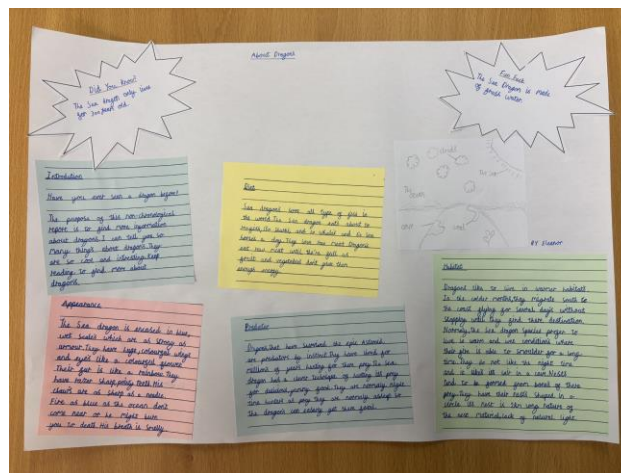 About Dragons
Did You Know?
The Sea dragon only live
for 200 years old.
Fun Fact
The Sea Dragon is made
of fresh water.
Introduction
Have you ever seen a dragon before?
The purpose of this non-chronological
report is to find more information
about dragons. I will tell you so
many things about dragons. They
are so cool and interesting. Keep
reading to find more about
dragons.
Diet
Sea dragons love all type of fish in
the world. The Sea dragon eats
a day. They love raw meat. Dragons
eat raw meat until they're full as
fruit and vegetables don't give them
enough energy.
clouds
The sun
The
ocean
cave
land
BY Student
Appearance
The Sea dragon is covered in blue,
wet scales which are as strong as
armour. They have large, colourful wings
and eyes like a coloured
Their fur is like a rainbow. They
have razor sharp, pointy teeth. His
claws are as sharp as a needle.
Fire as blue as the ocean don't
come near or he might burn
you to death. His breath is smelly.
Predator
Dragons that have survived the epic asteroid
are predators by instinct. They have lived for
millions of years hunting for their prey. The sea
dragon has a clever technique of
for delicious, yummy food. They are normally night
time hunters as prey they are normally asleep so
the dragons can easily get their food.
Habitat
Dragons like to live in warmer habitats.
In the colder months, they migrate south to
the coast flying for several days without
stopping until they find there destination.
Normally, the Sea dragon species prefer to
live in warm and wet conditions where
their fire is able to smoulder for a long
time. They do not like the night time
and is likely to sit in a cave. Nests
tend to be formed from bones of there
prey. They have their nests shaped in a
circle. Its nest is 3km long
the nest material, lack of natural light.